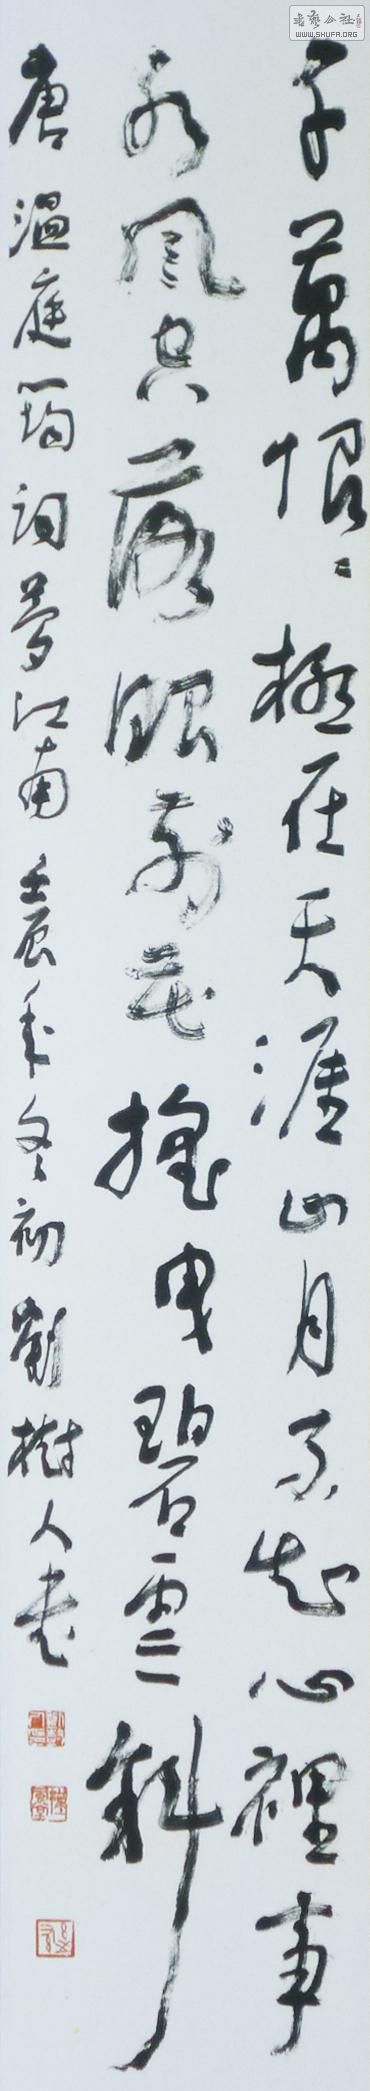 千萬恨恨極在天涯山月不知心裡事
水風空落眼前花搖曳碧雲斜
唐溫庭筠詞夢江南壬辰年冬初劉樹人書
書藝公社
WWW.SHUFA.ORG